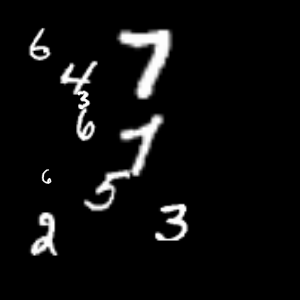 6 7
4
3
6 7
6 5
2 3